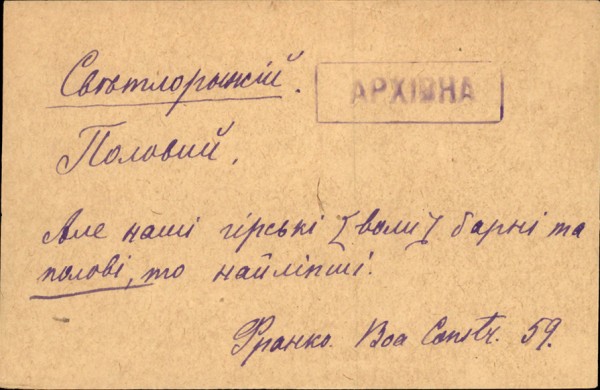 Свѣтлорыжій.
АРХІВНА
Половий.
Але наші гірські [воли] барні та
полові, то найліпші.
Франко. Boa Constr. 59.